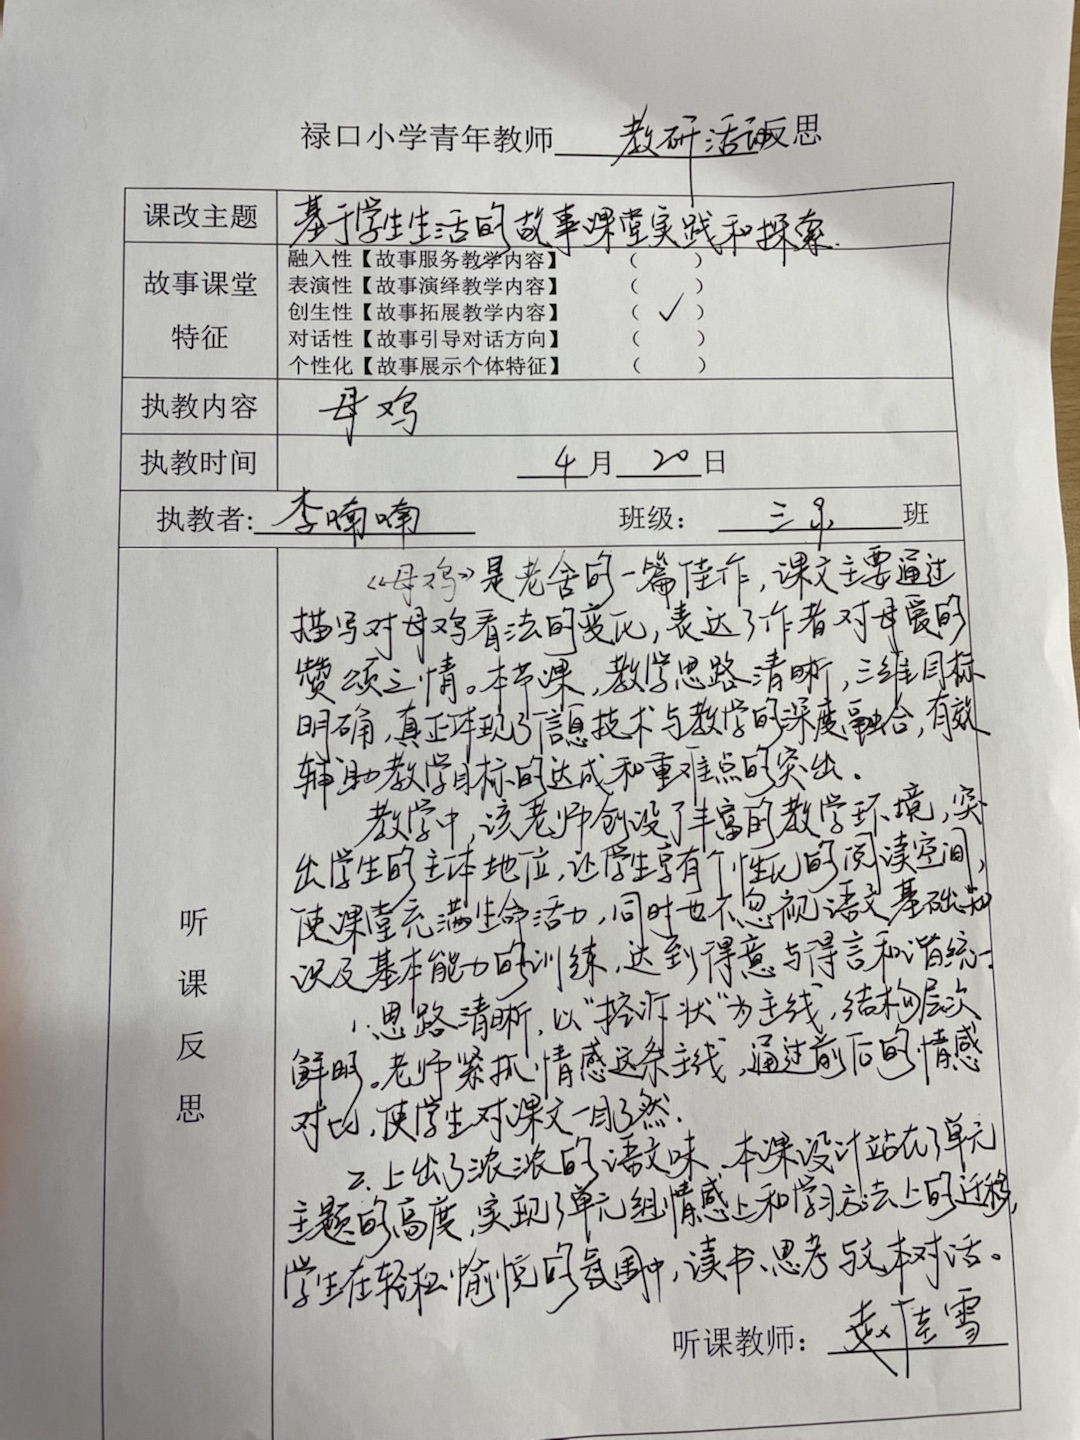 禄口小学青年教师 教研活动反思
课改主题 基于学生生活的故事课堂实践和探索.
故事课堂特征
融入性【故事服务教学内容】 （ ）
表演性【故事演绎教学内容】 （ ）
创生性【故事拓展教学内容】 （ ✓ ）
对话性【故事引导对话方向】 （ ）
个性化【故事展示个体特征】 （ ）
执教内容 母鸡
执教时间 4月20日
执教者: 李喃喃 班级： 三 班
听课反思
《母鸡》是老舍的一篇佳作，课文主要通过
描写对母鸡看法的变化，表达了作者对母爱的
赞颂之情。本节课，教学思路清晰，三维目标
明确，真正体现了信息技术与教学的深度融合，有效
辅助教学目标的达成和重难点的突出.
教学中，该老师创设了丰富的教学环境，突
出学生的主体地位，让学生享有个性化的阅读空间，
使课堂充满生命活力，同时也不忽视语文基础知
识及基本能力的训练，达到得意与得言和谐统一.
1.思路清晰，以“控诉状”为主线，结构层次
鲜明。老师紧抓情感这条主线，通过前后的情感
对比，使学生对课文一目了然.
2.上出了浓浓的语文味，本课设计站在了单元
主题的高度，实现了单元组情感上和学习方法上的迁移，
学生在轻松愉悦的氛围中，读书、思考与文本对话。
听课教师： 赵佳雪